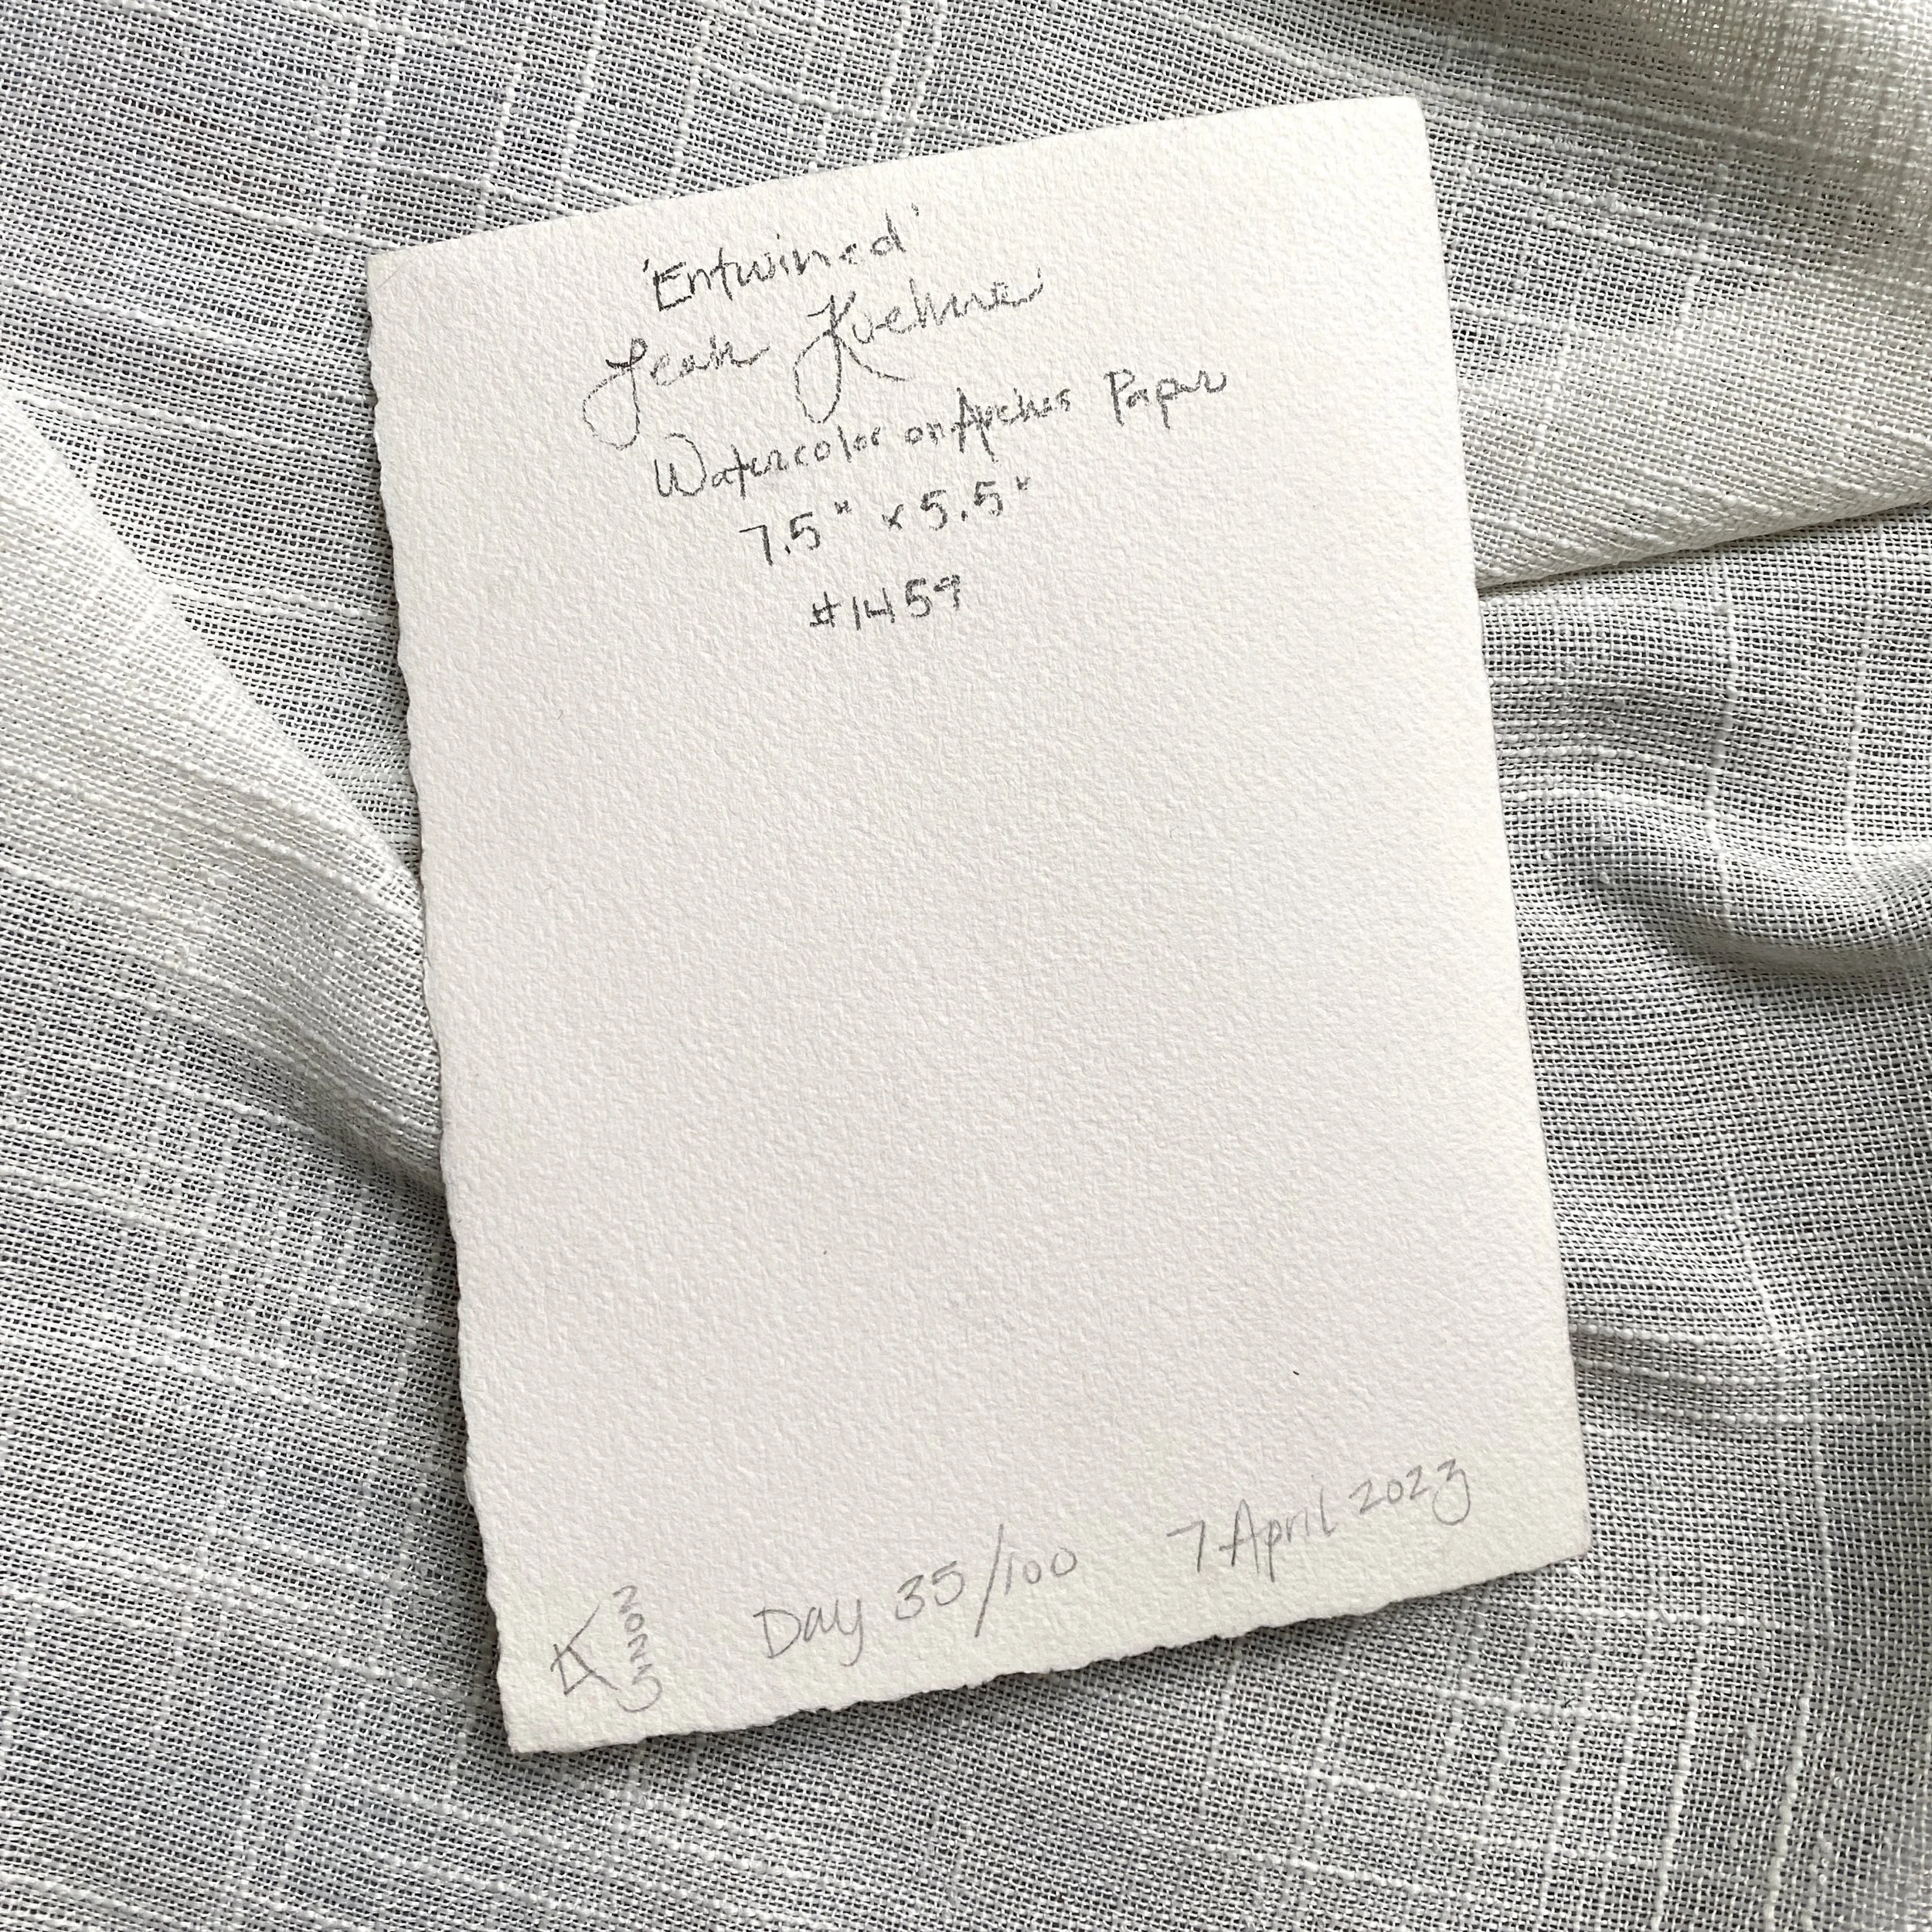 'Entwined'
Leah Kuehne
Watercolor on Arches Paper
7.5" x 5.5"
#1459
Day 35/100 7 April 2023
K 2023